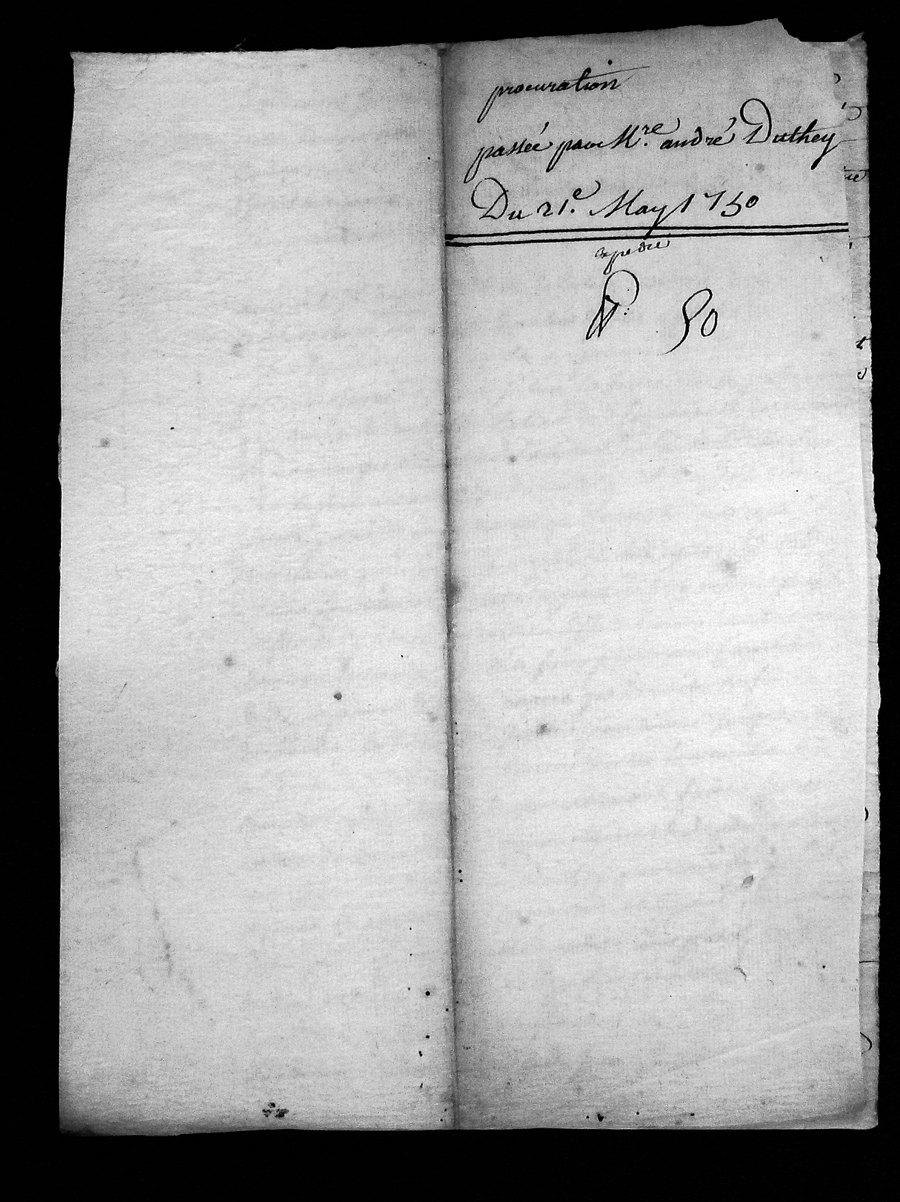 procuration
passée par Mre. andré Duthey
Du 21e. May 1750
expedié
50